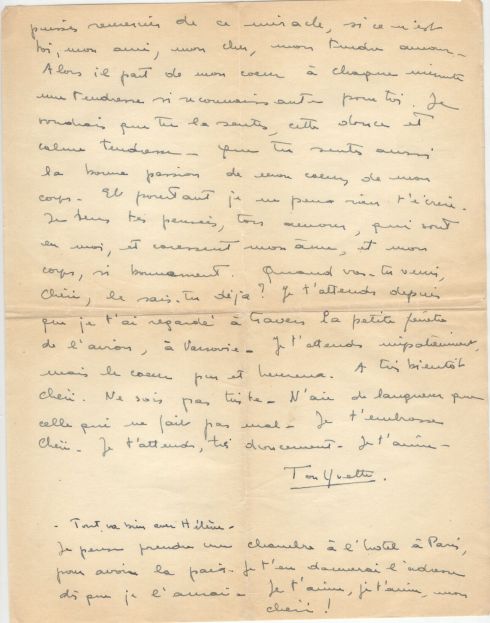 puisses remercier de ce miracle, si ce n'est
toi, mon ami, mon cher, mon tendre amour -
Alors il part de mon coeur à chaque minute
une tendresse si reconnaissante pour toi. Je
voudrais que tu la sentes, cette douce et
calme tendresse - que tu sentes aussi
la bonne passion de mon coeur, de mon
corps - Et pourtant je ne peux rien t'écrire -
Je sens tes pensées, ton amour, qui sont
en moi, et caressent mon âme, et mon
corps, si bonnement. Quand vas-tu venir,
Chéri, le sais-tu déjà? Je t'attends depuis
que je t'ai regardé à travers la petite fenêtre
de l'avion, à Varsovie - Je t'attends impatiemment,
mais le coeur pur et heureux. A très bientôt
Chéri. Ne sois pas triste - N'aie de langueur que
celle qui ne fait pas mal - Je t'embrasse
Chéri - Je t'attends, très doucement - Je t'aime -
Ton Yvette.
- Tout va bien avec Hélène -
Je pense prendre une chambre à l'hotel à Paris,
pour avoir la paix - Je t'en donnerai l'adresse
dès que je l'aurai - Je t'aime, je t'aime, mon
chéri!